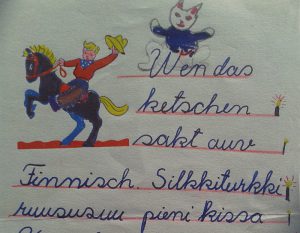 Wen das
ketschen
sakt auv
Finnisch. Silkkiturkki
pieni kissa